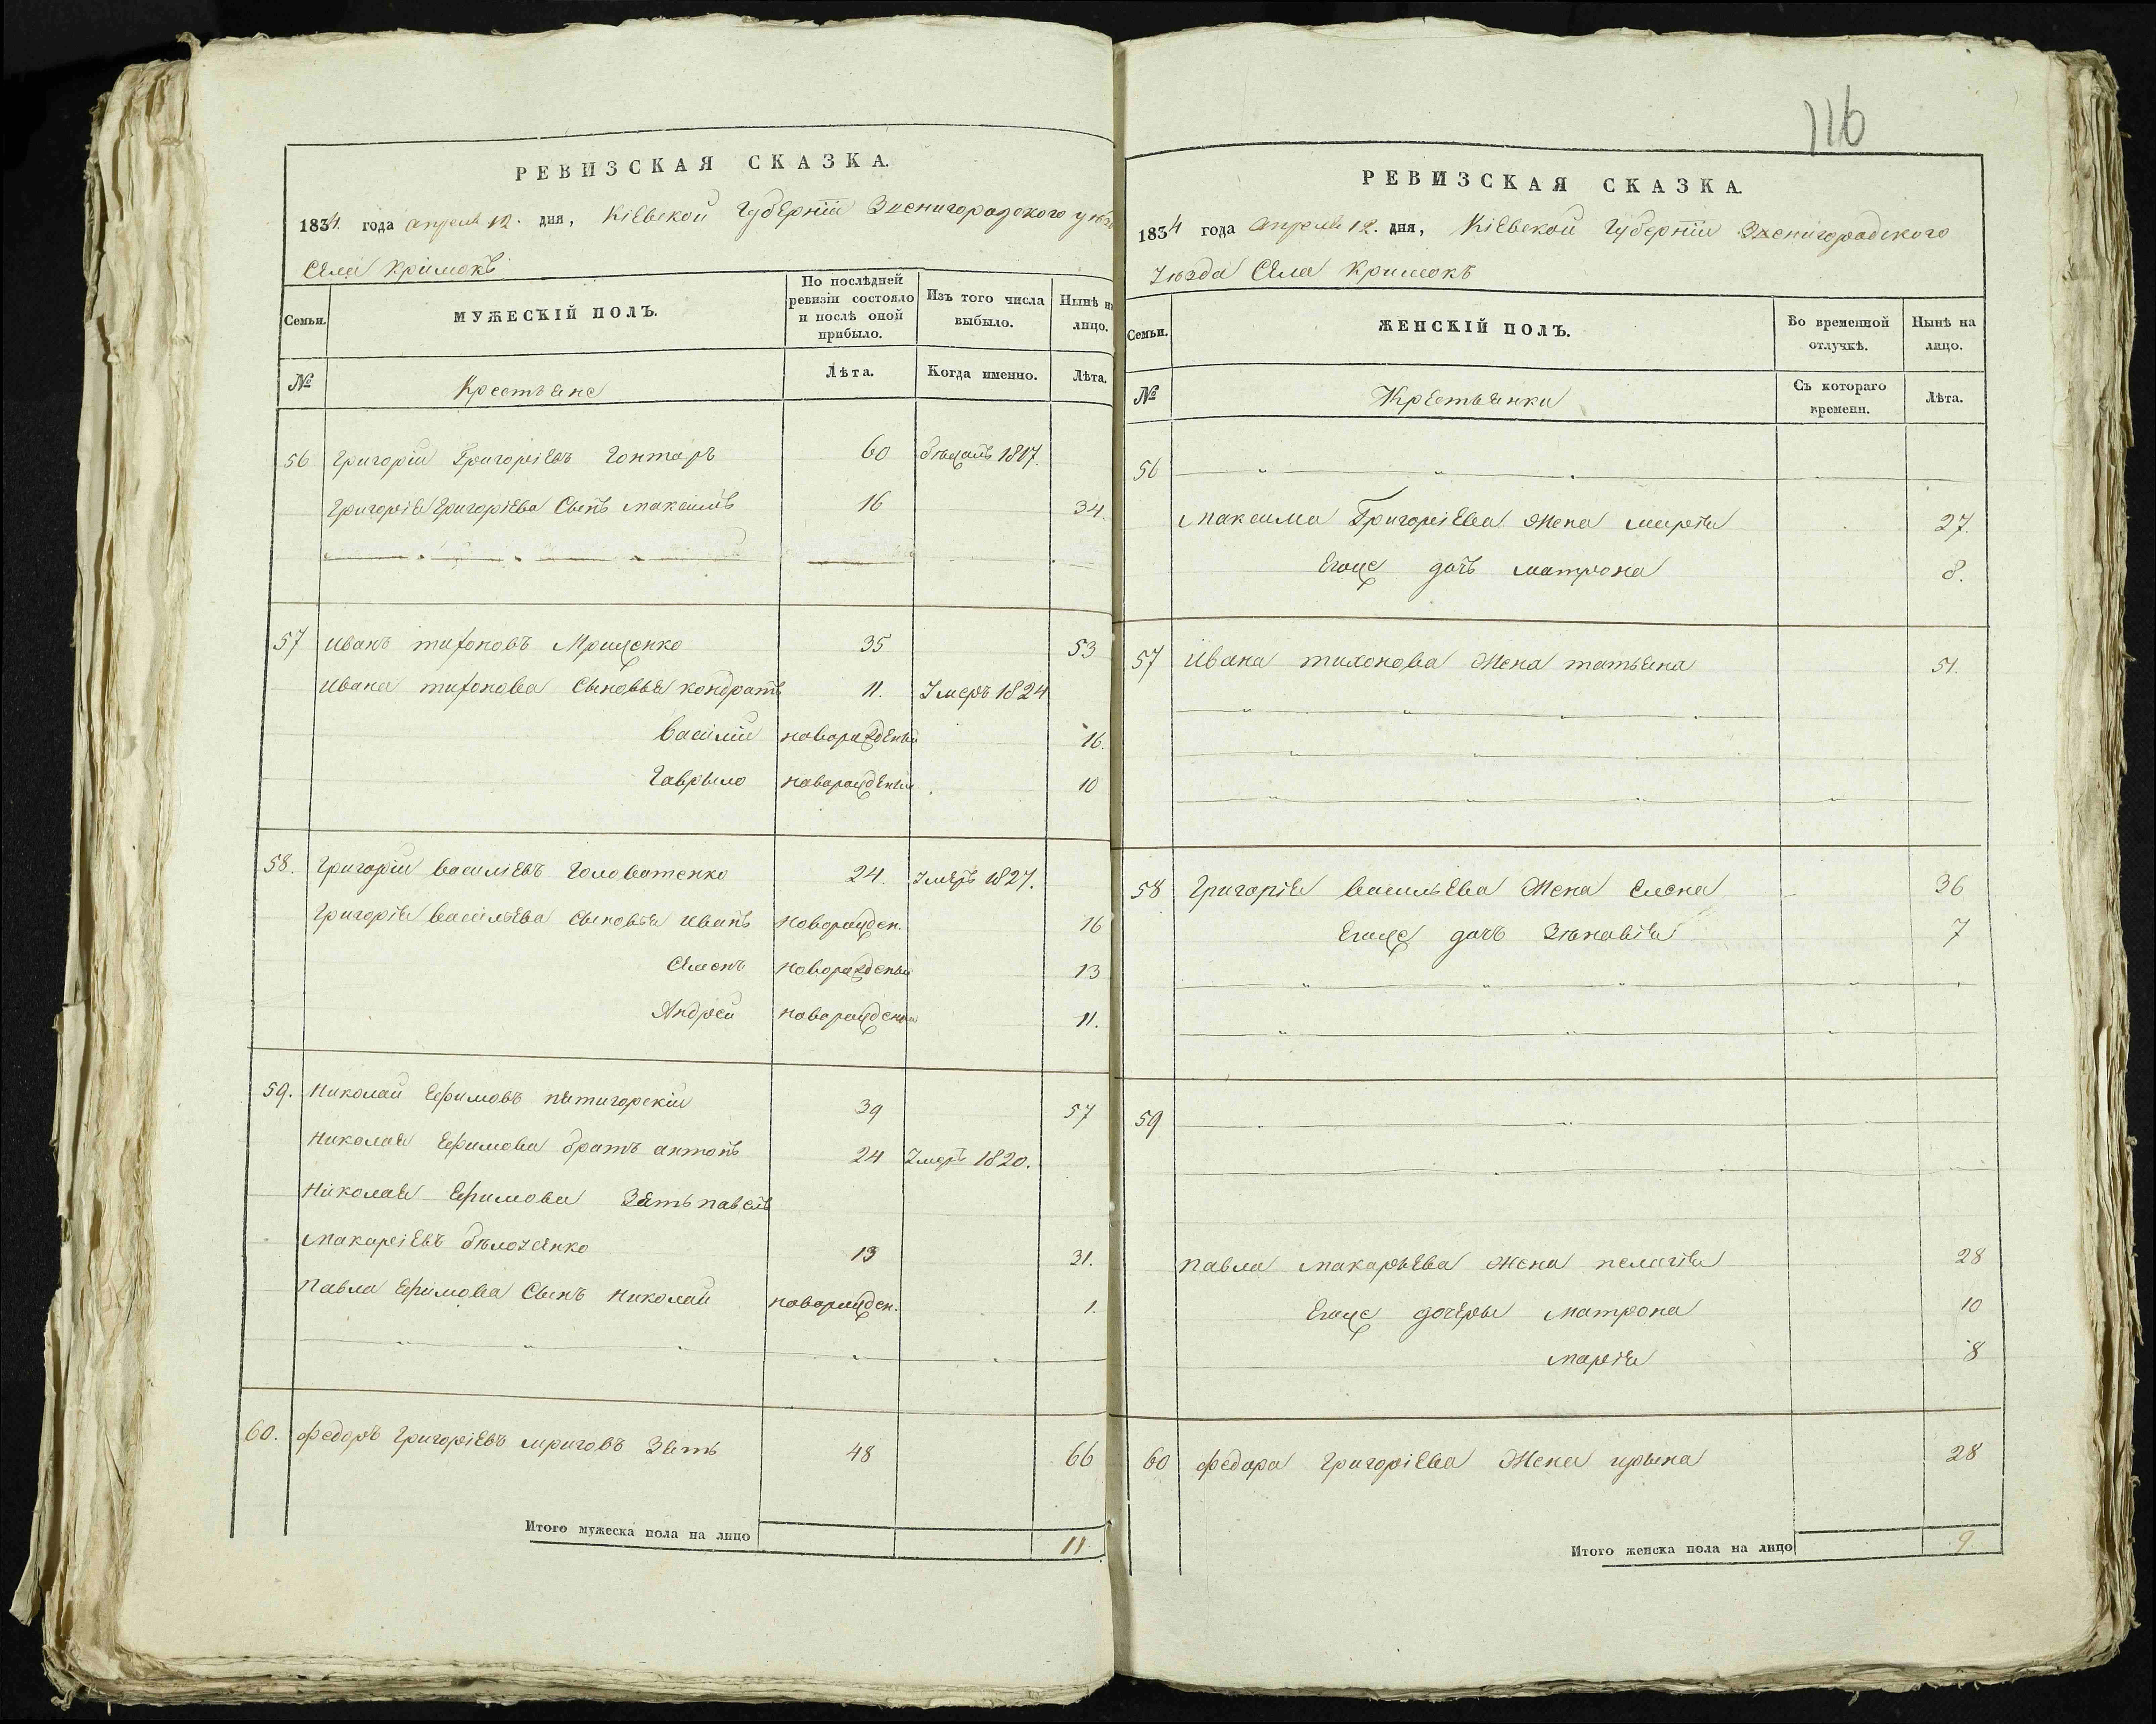 116
РЕВИЗСКАЯ СКАЗКА.
1834. года апреля 12. дня, Кіевской Губерніи Звенигородского уѣз
Села Кримокъ
Семьи.
МУЖЕСКІЙ ПОЛЪ.
По послѣдней ревизіи состояло и послѣ оной прибыло.
Изъ того числа выбыло.
Нынѣ на лицо.
№
Крестьяне
Лѣта.
Когда именно.
Лѣта.
56 Григорій Григоріевъ Гонтаръ 60 бѣжалъ 1817.
Григорія Григоріева Сынъ Максимъ 16 34.
57 Иванъ тихоновъ Мрищенко 35 53
Ивана тихонова Сыновья кондратъ 11. Умеръ 1824
Василій новорожденый 16.
Гаврыло новорожденый 10
58. Григорій василіевъ Головатенко 24. Умеръ 1827.
Григорія васильева Сыновья иванъ новорожден. 16
Семенъ новорожденый 13
Андрей новорожденый 11.
59. Николай Ефимовъ пятигорскій 39 57
Николая Ефимова братъ антонъ 24 Умеръ 1820.
Николая Ефимова Зять павелъ
Макаріевъ бѣлоченко 13 31.
Павла Ефимова Сынъ Николай новорожден. 1.
60. Федоръ Григоріевъ мриговъ Зять 48 66
Итого мужеска пола на лицо 11
РЕВИЗСКАЯ СКАЗКА.
1834 года Апреля 12. дня, Кіевской Губерніи Звенигородского
Уѣзда Села Кримокъ
Семьи.
ЖЕНСКІЙ ПОЛЪ.
Во временной отлучкѣ.
Нынѣ на лицо.
№
Крестьянки
Съ котораго времени.
Лѣта.
56
Максима Григоріева Жена марія 27.
Егоже дочъ матрона 8.
57 Ивана тихонова Жена татьяна 51.
58 Григорія васильева Жена Елена 36
Егоже дочъ Зѣновія 7
59
Павла макарьева Жена пелагія 28
Егоже дочеры матрона 10
марія 8
60 Федора Григоріева Жена ирына 28
Итого женска пола на лицо 9